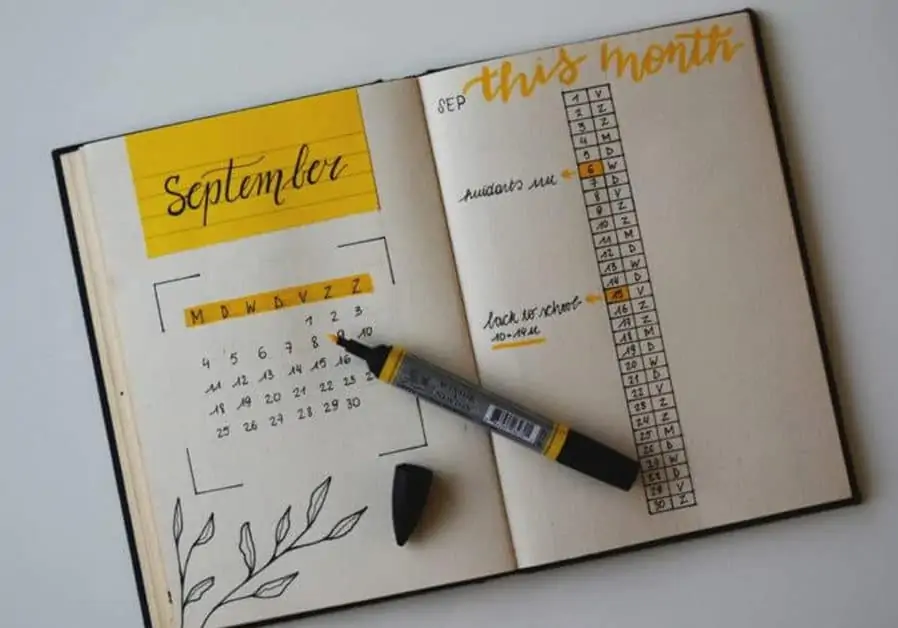 September
M D W D V Z Z
1 2 3
4 5 6 7 8 9 10
11 12 13 14 15 16
18 19 20 21 22 23 2
25 26 27 28 29 30
this month
SEP
1 V
2 Z
3 Z
4 M
5 D
huidarts
6 W
7 D
8 V
9 Z
10 Z
11 M
12 D
13 W
14 D
back to school
10-14u
15 V
16 Z
17 Z
18 M
19 D
20 W
21 D
22 V
23 Z
24 Z
25 M
26 D
27 W
28 D
29 V
30 Z
WINSOR
NEWTON